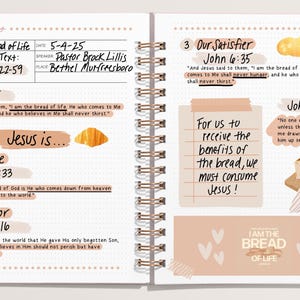 ad of Life
Text:
22-59
DATE 5-4-25
SPEAKER Pastor Brock Lillis
PLACE Bethel Murfreesboro
"I am the bread of life. He who comes to Me
and he who believes in Me shall never thirst."
Jesus is...
e
:33
d of God is He who comes down from heaven
to the world."
or
:16
the world that He gave His only begotten Son,
elieves in Him should not perish but have
3 Our Satisfier
John 6:35
"And Jesus said to them, "I am the bread of
comes to Me shall never hunger, and he who
shall never thirst."
For us to
receive the
benefits of
the bread, we
must consume
Jesus!
Jo
"No one
unless
me draws
him up
I AM THE
BREAD
OF LIFE